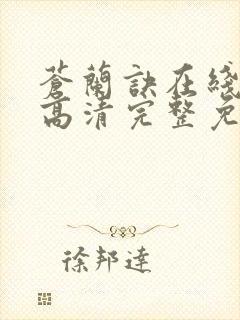 蒼蘭訣在綫
高清完整免
徐邦達